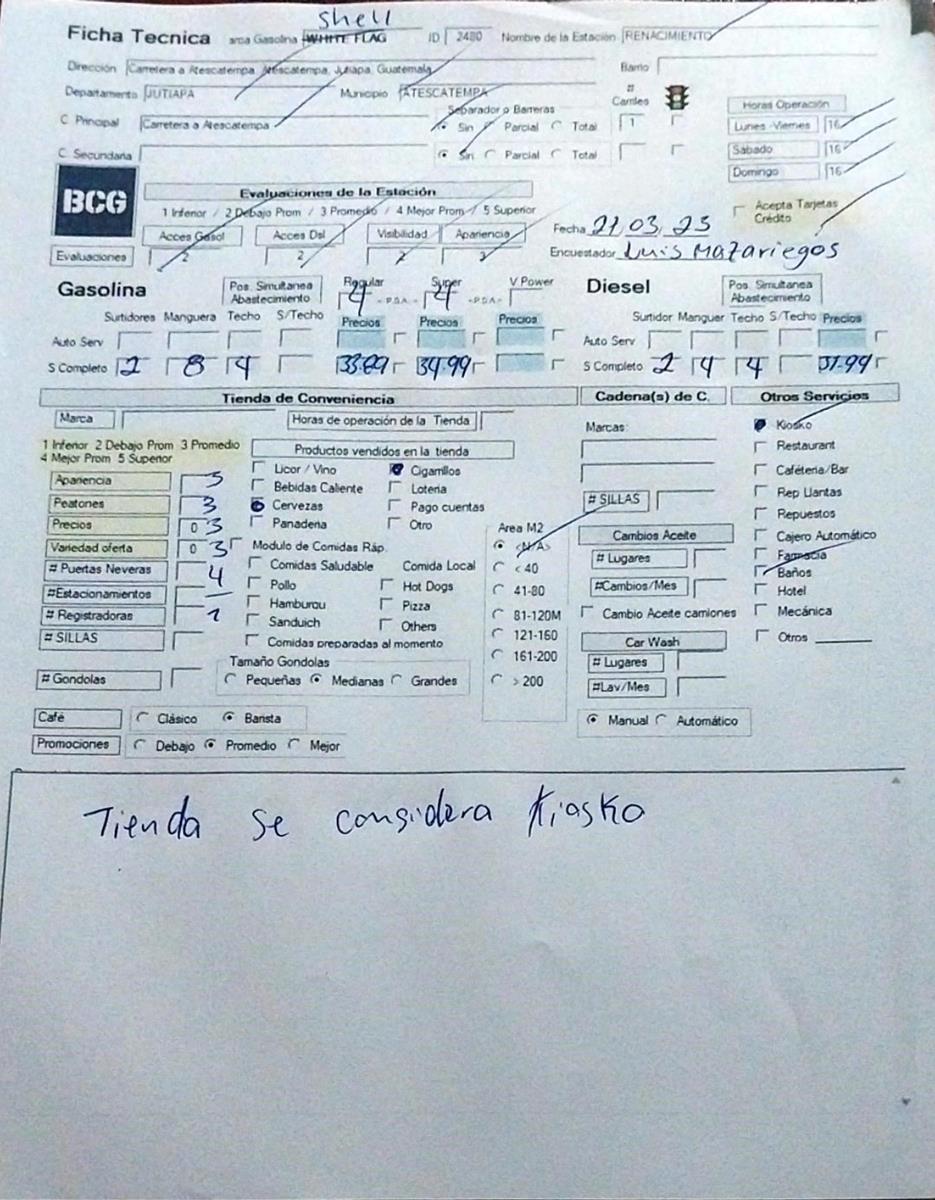 Shell
Ficha Tecnica arca Gasolina WHITE FLAG ID 2480 Nombre de la Estación RENACIMIENTO
Dirección Carretera a Atescatempa, Atescatempa, Jutiapa, Guatemala Barrio
Departamento JUTIAPA Municipio ATESCATEMPA # Carriles
Separador o Barreras Horas Operación
C Principal Carretera a Atescatempa Sin Parcial Total 1 Lunes -Viernes 16
C Secundaria Sin Parcial Total Sabado 16
Domingo 16
BCG Evaluaciones de la Estación
1 Inferior / 2 Debajo Prom / 3 Promedio / 4 Mejor Prom / 5 Superior Acepta Tarjetas Crédito
Acces Gasol Acces Dsl Visibilidad Apariencia Fecha 21,03,23
Evaluaciones 2 2 2 3 Encuestador Luis Mazariegos
Gasolina Pos. Simultanea Abastecimiento Regular 4 - P.S.A. - Super 4 -P.S.A.- V Power Diesel Pos. Simultanea Abastecimiento
Surtidores Manguera Techo S/Techo Precios Precios Precios Surtidor Manguer Techo S/Techo Precios
Auto Serv Auto Serv
S Completo 2 8 4 33.89 34.99 S Completo 2 4 4 31.99
Tienda de Conveniencia Cadena(s) de C. Otros Servicios
Marca Horas de operación de la Tienda Marcas: Kiosko
1 Inferior 2 Debajo Prom 3 Promedio Productos vendidos en la tienda Restaurant
4 Mejor Prom 5 Superior Licor / Vino Cigarrillos Cafeteria/Bar
Apariencia 3 Bebidas Caliente Loteria Rep Llantas
Peatones 3 Cervezas Pago cuentas # SILLAS Repuestos
Precios 0 3 Panaderia Otro Area M2 Cajero Automático
Variedad oferta 0 3 Modulo de Comidas Ráp. <N/A> Cambios Aceite Farmacia
# Puertas Neveras 4 Comidas Saludable Comida Local < 40 # Lugares Baños
#Estacionamientos — Pollo Hot Dogs 41-80 #Cambios/Mes Hotel
# Registradoras 1 Hamburgu Pizza 81-120M Cambio Aceite camiones Mecánica
# SILLAS Sanduich Others 121-160 Car Wash Otros
Comidas preparadas al momento 161-200 # Lugares
# Gondolas Tamaño Gondolas > 200 #Lav/Mes
Pequeñas Medianas Grandes
Café Clásico Barista Manual Automático
Promociones Debajo Promedio Mejor
Tienda se considera Kiosko